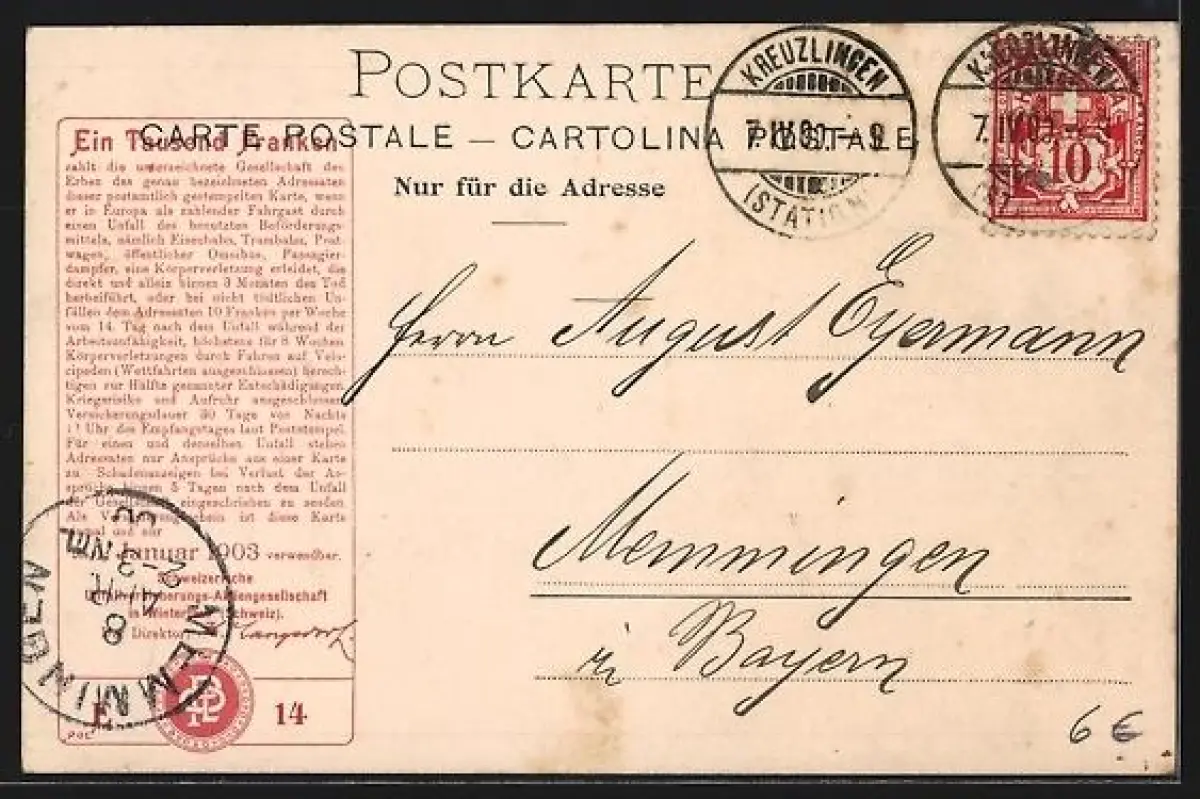 POSTKARTE
CARTE POSTALE — CARTOLINA POSTALE
Nur für die Adresse
KREUZLINGEN
7.IV.
— 9
(STATION
KREUZLINGEN
7.IV.
10
Ein Tausend Franken
zahlt die unterzeichnete Gesellschaft den
Erben des genau bezeichneten Adressaten
dieser postamtlich gestempelten Karte, wenn
er in Europa als zahlender Fahrgast durch
einen Unfall des benutzten Beförderungs-
mittels, nämlich Eisenbahn, Trambahn, Post-
wagen, öffentlicher Omnibus, Passagier-
dampfer, eine Körperverletzung erleidet, die
direkt und allein binnen 3 Monaten den Tod
herbeiführt, oder bei nicht tödtlichen Un-
fällen dem Adressaten 10 Franken per Woche
vom 14. Tag nach dem Unfall während der
Arbeitsunfähigkeit, höchstens für 8 Wochen
Körperverletzungen durch Fahren auf Velo-
cipeden (Wettfahrten ausgeschlossen) berech-
tigen zur Hälfte genannter Entschädigungen
Kriegsrisiko und Aufruhr ausgeschlossen
Versicherungsdauer 30 Tage von Nachts
Uhr des Empfangstages laut Poststempel.
Für einen und denselben Unfall stehen
Adressaten nur Ansprüche aus einer Karte
zu Schadenanzeigen bei Verlust der An-
sprüche binnen 5 Tagen nach dem Unfall
der Gesellschaft eingeschrieben zu senden
Als Versicherungsschein ist diese Karte
einmal und nur
Januar 1903 verwendbar.
Schweizerische
Unfallversicherungs-Aktiengesellschaft
in Winterthur (Schweiz).
Direktor:
E
14
MEMMINGEN
8
Herrn August Eyermann
Memmingen
in Bayern
6 €